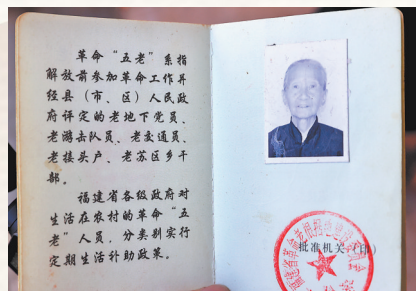 革命“五老”系指
解放前参加革命工作并
经县（市、区）人民政
府评定的老地下党员、
老游击队员、老交通员、
老接头户、老苏区乡干
部。
福建省各级政府对
生活在农村的革命“五
老”人员，分类别实行
定期生活补助政策。
批准机关（印）